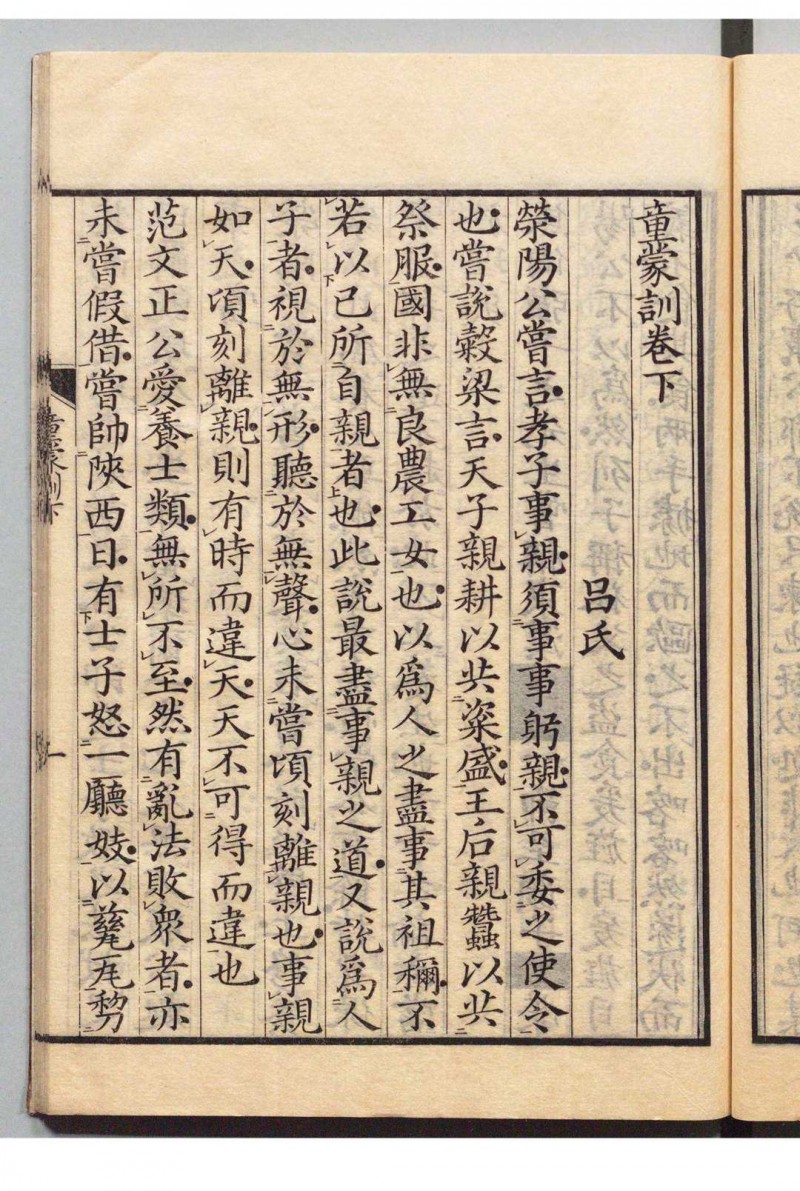 童蒙訓卷下
呂氏
滎陽公嘗言孝子事親須事事躬親不可委之使令
也嘗說穀梁言天子親耕以共粢盛王后親蠶以共
祭服國非無良農工女也以爲人之盡事其祖禰不
若以已所自親者也此說最盡事親之道又說爲人
子者視於無形聽於無聲心未嘗頃刻離親也事親
如天頃刻離親則有時而違天天不可得而違也
范文正公愛養士類無所不至然有亂法敗衆者亦
未嘗假借嘗帥陝西日有士子怒一廳妓以甆瓦剺
童蒙訓下
一